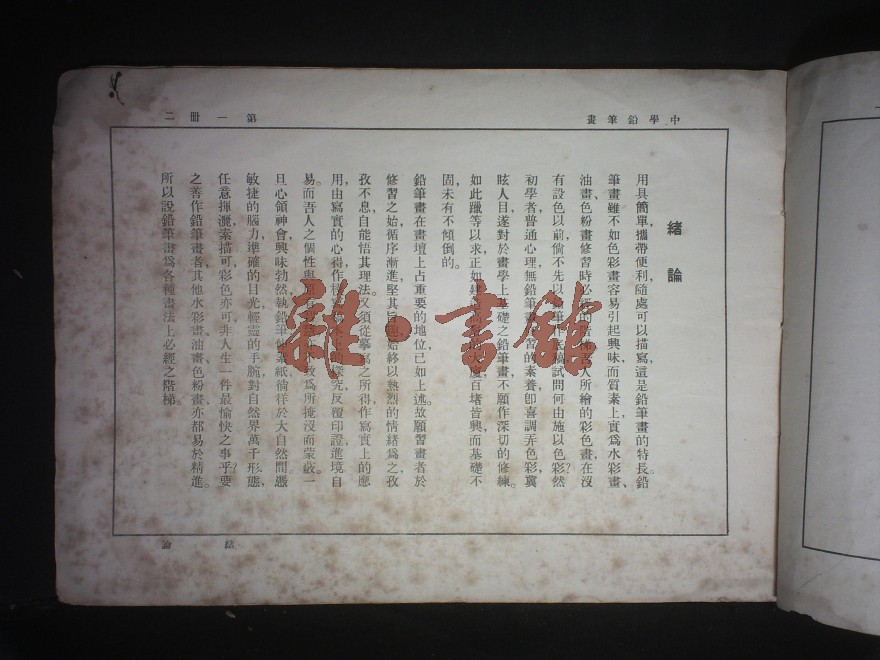 中學鉛筆畫
第一冊 二
緒論
用具簡單,攜帶便利,隨處可以描寫,這是鉛筆畫的特長。鉛
筆畫雖不如色彩畫容易引起興味,而質素上,實爲水彩畫、
油畫、色粉畫修習時必經的階梯。吾人所繪的彩色畫,在沒
有設色以前,倘不先以鉛筆,試問何由施以色彩?然
初學者普通心理,無鉛筆畫習的素養,卽喜調弄色彩,冀
眩人目,遂對於畫學上基礎之鉛筆畫,不願作深切的修練。
如此躐等以求,正如百堵皆興,而基礎不
固,未有不傾倒的。
鉛筆畫在畫壇上占重要的地位,已如上述。故願習畫者,於
修習之始,循序漸進,堅其旨,始終以熱烈的情緒爲之,孜
孜不息,自能悟其理法。又須從摹寫之所得,作寫實上的應
用,由寫實的心得,作究,反覆印證,進境自
易。而吾人之個性與爲所掩沒而蒙蔽。一
旦心領神會,興味勃然,執鉛筆,紙,徜徉於大自然間,憑
敏捷的腦力,準確的目光,輕靈的手腕,對自然界萬千形態,
任意揮灑,素描可,彩色亦可,非人生一件最愉快之事乎?要
之,善作鉛筆畫者,其他水彩畫、油畫、色粉畫,亦都易於精進。
所以說鉛筆畫爲各種畫法上必經之階梯。
緒論
雜·書館